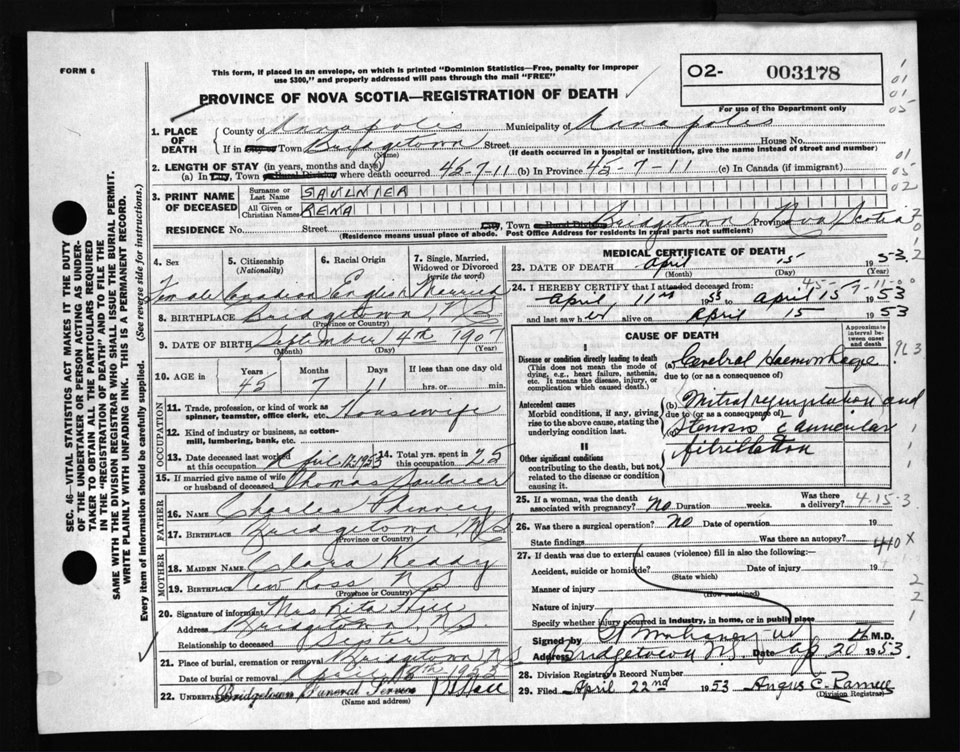 FORM 6
This form, if placed in an envelope, on which is printed "Dominion Statistics—Free, penalty for improper
use $300," and properly addressed will pass through the mail "FREE"
02- 003178
PROVINCE OF NOVA SCOTIA—REGISTRATION OF DEATH
For use of the Department only
1. PLACE OF DEATH
County of Annapolis Municipality of Annapolis
If in City Town Bridgetown Street House No.
(Name) (If death occurred in a hospital or institution, give the name instead of street and number)
2. LENGTH OF STAY (in years, months and days)
(a) In City, Town or Rural Division where death occurred 45-7-11 (b) In Province 45-7-11 (c) In Canada (if immigrant)
3. PRINT NAME OF DECEASED
Surname or Last Name SAULNIER
All Given or Christian Names RENA
RESIDENCE No. Street City, Town or Rural Division Bridgetown Province Nova Scotia
(Residence means usual place of abode. Post Office Address for residents in rural parts not sufficient)
SEC. 46—VITAL STATISTICS ACT MAKES IT THE DUTY
OF THE UNDERTAKER OR PERSON ACTING AS UNDER-
TAKER TO OBTAIN ALL THE PARTICULARS REQUIRED
IN THE "REGISTRATION OF DEATH" AND TO FILE THE
SAME WITH THE DIVISION REGISTRAR WHO SHALL ISSUE THE BURIAL PERMIT.
WRITE PLAINLY WITH UNFADING INK. THIS IS A PERMANENT RECORD.
Every item of information should be carefully supplied. (See reverse side for instructions.)
4. Sex 5. Citizenship (Nationality) 6. Racial Origin 7. Single, Married, Widowed or Divorced (write the word)
Female Canadian English Married
8. BIRTHPLACE Bridgetown, N.S.
(Province or Country)
9. DATE OF BIRTH September 4th 1907
(Month) (Day) (Year)
10. AGE in Years Months Days If less than one day old
45 7 11 hrs. or min.
OCCUPATION
11. Trade, profession, or kind of work as spinner, teamster, office clerk, etc. Housewife
12. Kind of industry or business, as cotton-mill, lumbering, bank, etc.
13. Date deceased last worked at this occupation April 12, 1953 14. Total yrs. spent in this occupation 25
15. If married give name of wife or husband of deceased Thomas Saulnier
FATHER
16. NAME Charles Phinney
17. BIRTHPLACE Bridgetown, N.S.
(Province or Country)
MOTHER
18. MAIDEN NAME Clara Keddy
19. BIRTHPLACE New Ross N.S
(Province or Country)
20. Signature of informant Mrs Rita
Address Bridgetown, N.S.
Relationship to deceased Sister
21. Place of burial, cremation or removal Bridgetown N.S
Date of burial or removal April 1953
22. UNDERTAKER Bridgetown Funeral Service
(Name and address)
MEDICAL CERTIFICATE OF DEATH
23. DATE OF DEATH April 15 1953
(Month) (Day)
24. I HEREBY CERTIFY that I attended deceased from:
April 11th 1953 to April 15 1953
and last saw her alive on April 15 1953
CAUSE OF DEATH
Approximate interval between onset and death
I
Disease or condition directly leading to death
(This does not mean the mode of dying, e.g., heart failure, asthenia, etc. It means the disease, injury, or complication which caused death.)
(a) Cerebral Haemorrhage
due to (or as a consequence of)
Antecedent causes
Morbid conditions, if any, giving rise to the above cause, stating the underlying condition last.
(b) Mitral regurgitation and
due to (or as a consequence of)
Stenosis c auricular
fibrillation
II
Other significant conditions
contributing to the death, but not related to the disease or condition causing it.
25. If a woman, was the death associated with pregnancy? No Duration weeks. Was there a delivery?
4-15-3
26. Was there a surgical operation? No Date of operation 19
State findings Was there an autopsy?
440 X
27. If death was due to external causes (violence) fill in also the following:
Accident, suicide or homicide? Date of injury 19
(State which)
Manner of injury
(How sustained)
Nature of injury
Specify whether injury occurred in industry, in home, or in public place
Signed by M.D.
Address Bridgetown N.S. Date Ap 20 1953
28. Division Registrar's Record Number
29. Filed April 22nd 1953 Angus C.
(Division Registrar)